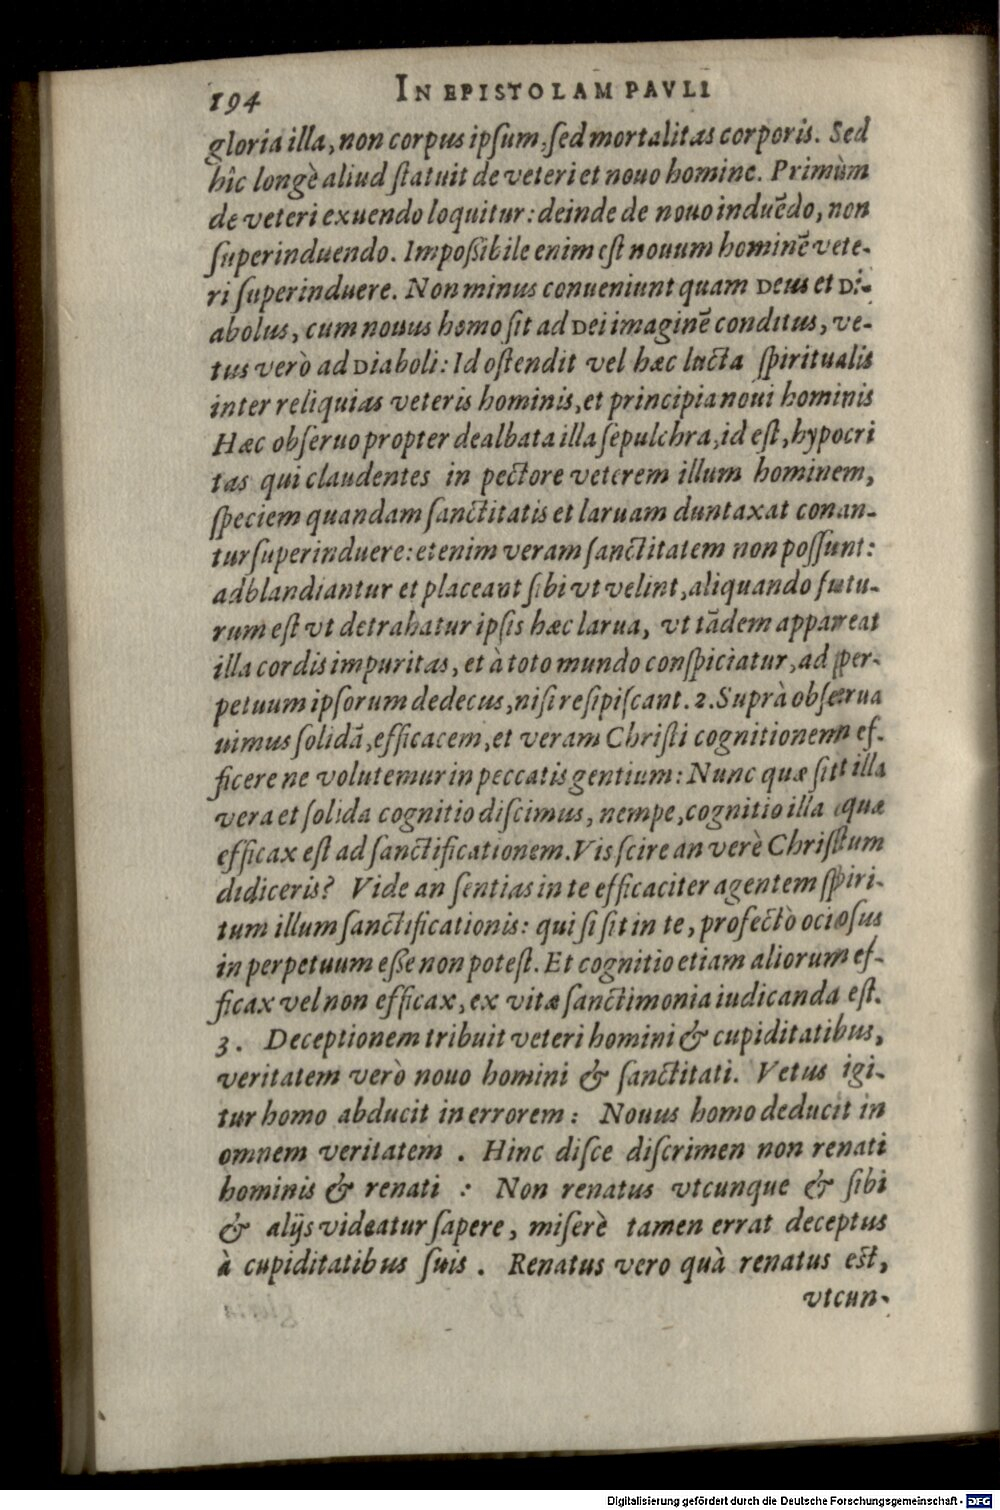 194 IN EPISTOLAM PAVLI
gloria illa, non corpus ipſum, ſed mortalitas corporis. Sed
hîc longè aliud ſtatuit de veteri et nouo homine. Primùm
de veteri exuendo loquitur: deinde de nouo induẽdo, non
ſuperinduendo. Impoßibile enim eſt nouum hominẽ vete-
ri ſuperinduere. Non minus conueniunt quam Deus et Di-
abolus, cum nouus homo ſit ad Dei imaginẽ conditus, ve-
tus verò ad Diaboli: Id oſtendit vel hæc lucta ſpiritualis
inter reliquias veteris hominis, et principia noui hominis
Hæc obſeruo propter dealbata illa ſepulchra, id eſt, hypocri
tas qui claudentes in pectore veterem illum hominem,
ſpeciem quandam ſanctitatis et laruam duntaxat conan-
tur ſuperinduere: etenim veram ſanctitatem non poſſunt:
adblandiantur et placeant ſibi vt velint, aliquando futu-
rum eſt vt detrahatur ipſis hæc larua, vt tãdem appareat
illa cordis impuritas, et à toto mundo conſpiciatur, ad per-
petuum ipſorum dedecus, niſi reſipiſcant. 2. Suprà obſerua
uimus ſolidã, efficacem, et veram Chriſti cognitionem ef-
ficere ne volutemur in peccatis gentium: Nunc quæ ſit illa
vera et ſolida cognitio diſcimus, nempe, cognitio illa quæ
efficax eſt ad ſanctificationem. Vis ſcire an verè Chriſtum
didiceris? Vide an ſentias in te efficaciter agentem ſpiri-
tum illum ſanctificationis: qui ſi ſit in te, profectò ocioſus
in perpetuum eße non poteſt. Et cognitio etiam aliorum ef-
ficax vel non efficax, ex vitæ ſanctimonia iudicanda eſt.
3. Deceptionem tribuit veteri homini & cupiditatibus,
veritatem verò nouo homini & ſanctitati. Vetus igi-
tur homo abducit in errorem: Nouus homo deducit in
omnem veritatem. Hinc diſce diſcrimen non renati
hominis & renati: Non renatus vtcunque & ſibi
& alijs videatur ſapere, miſerè tamen errat deceptus
à cupiditatibus ſuis. Renatus vero quà renatus eſt,
vtcun-
Digitalisierung gefördert durch die Deutsche Forschungsgemeinschaft - DFG